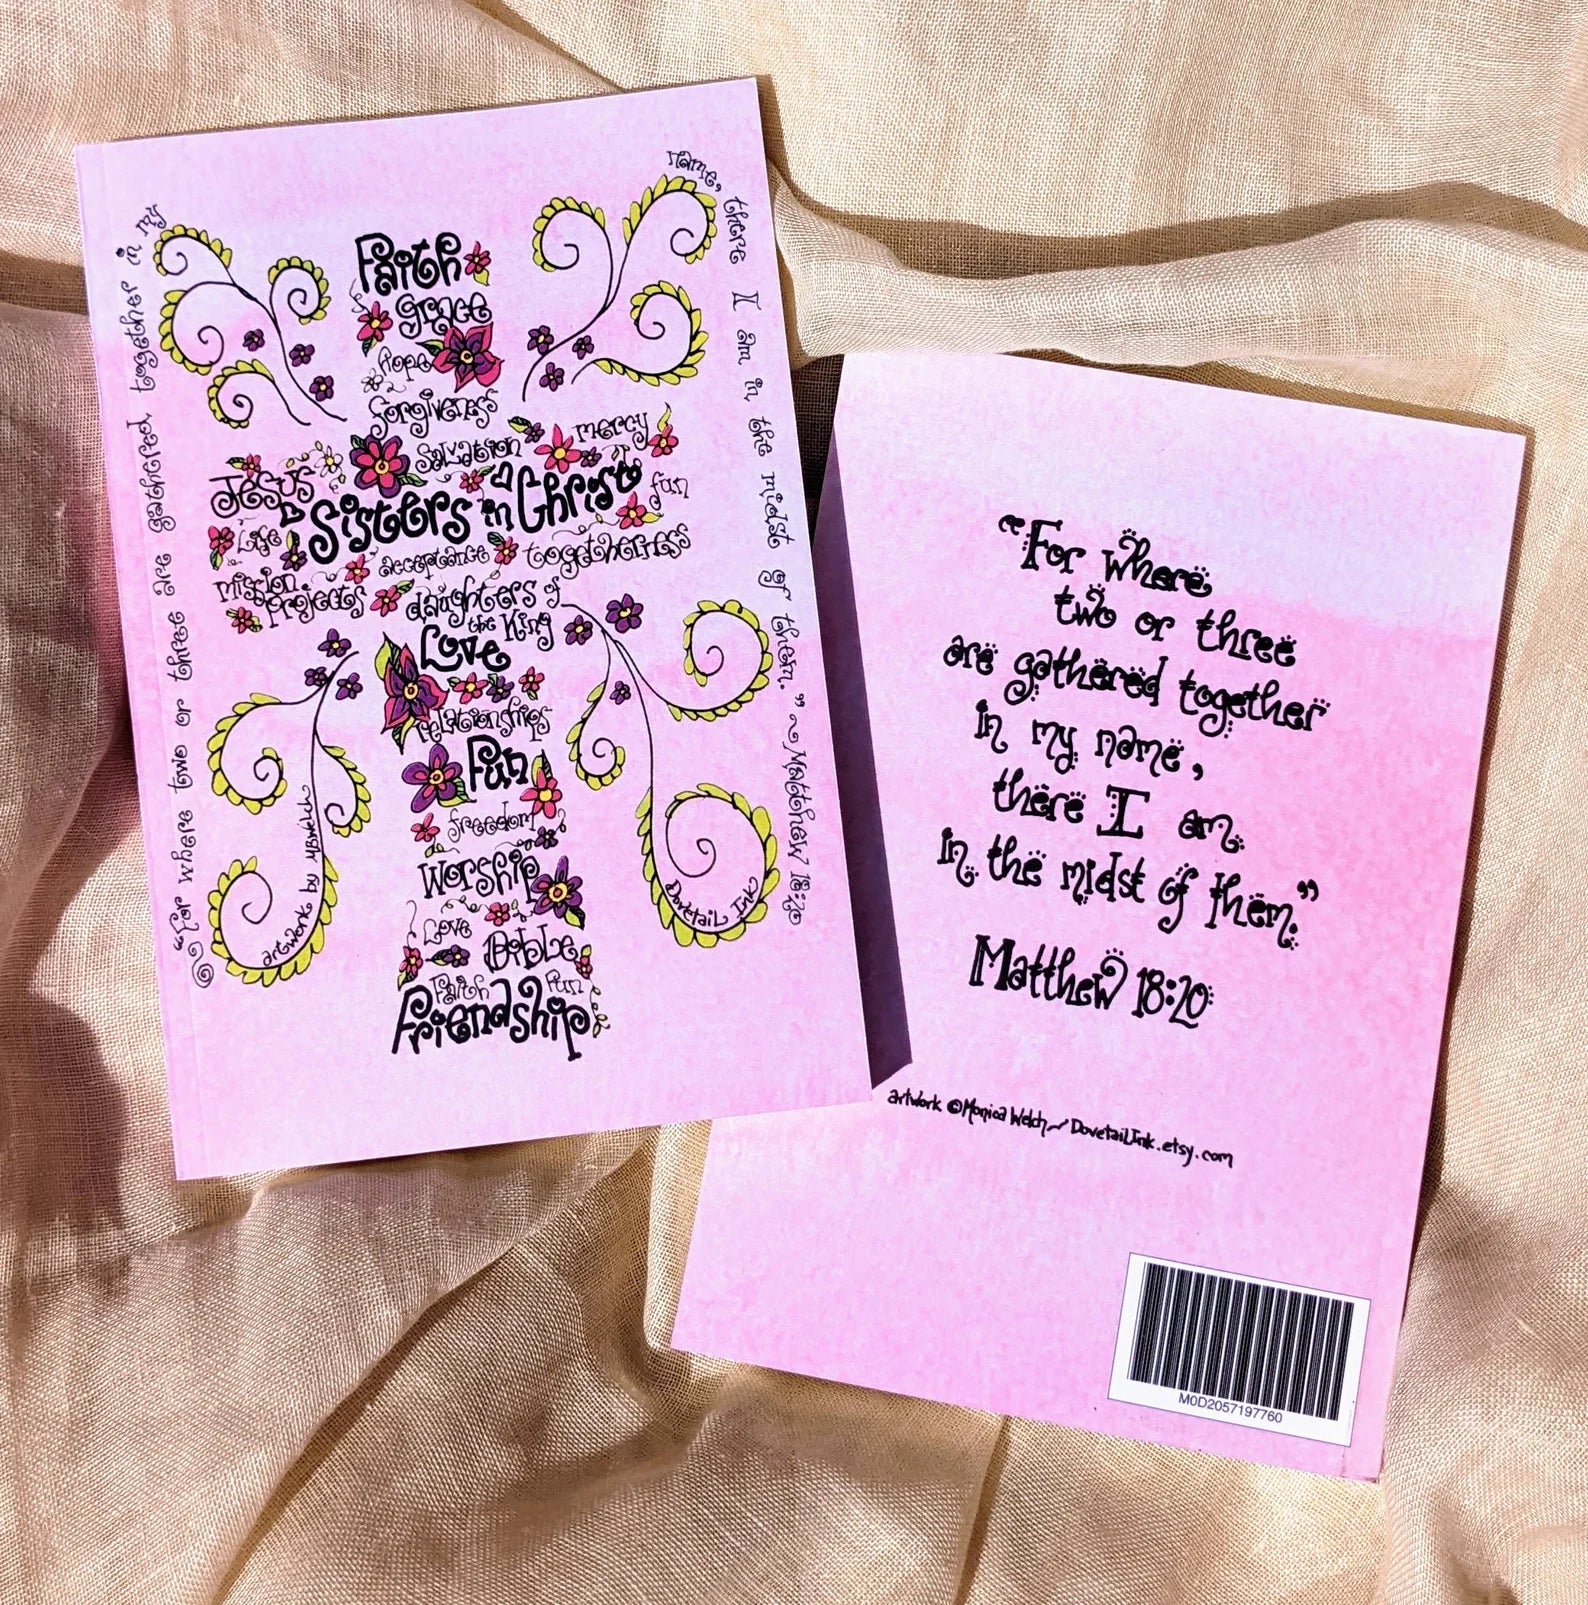 "For where two or three are gathered together in my
name, there I am in the midst of them." ~ Matthew 18:20
Faith
grace
hope
forgiveness
salvation mercy
Jesus
Sisters in Christ
fun
Life
acceptance togetherness
mission
projects
daughters of
the King
Love
relationships
Fun
freedom
Worship
Love
Bible
Faith Fun
Friendship
artwork by MBWelch
Dovetail Ink
"For where
two or three
are gathered together
in my name,
there I am
in the midst of them."
Matthew 18:20
artwork ©Monica Welch~DovetailInk.etsy.com
M0D2057197760